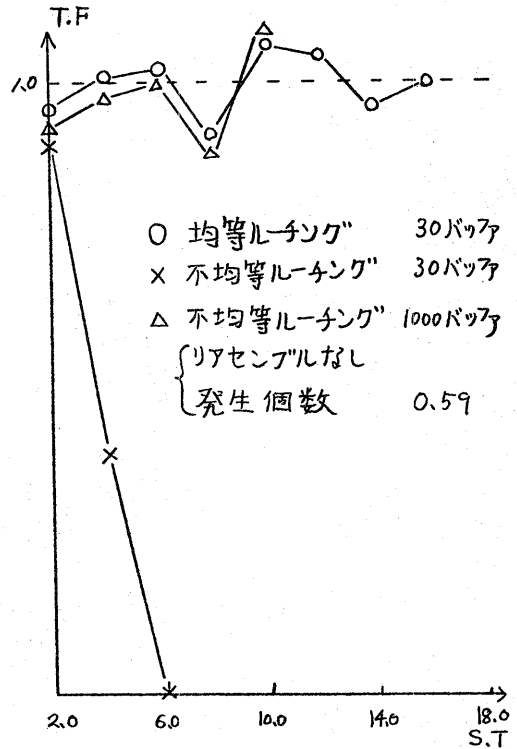 T.F
1.0
○ 均等ルーチング 30バッファ
× 不均等ルーチング 30バッファ
△ 不均等ルーチング 1000バッファ
リアセンブルなし
発生個数 0.59
2.0 6.0 10.0 14.0 18.0
S.T